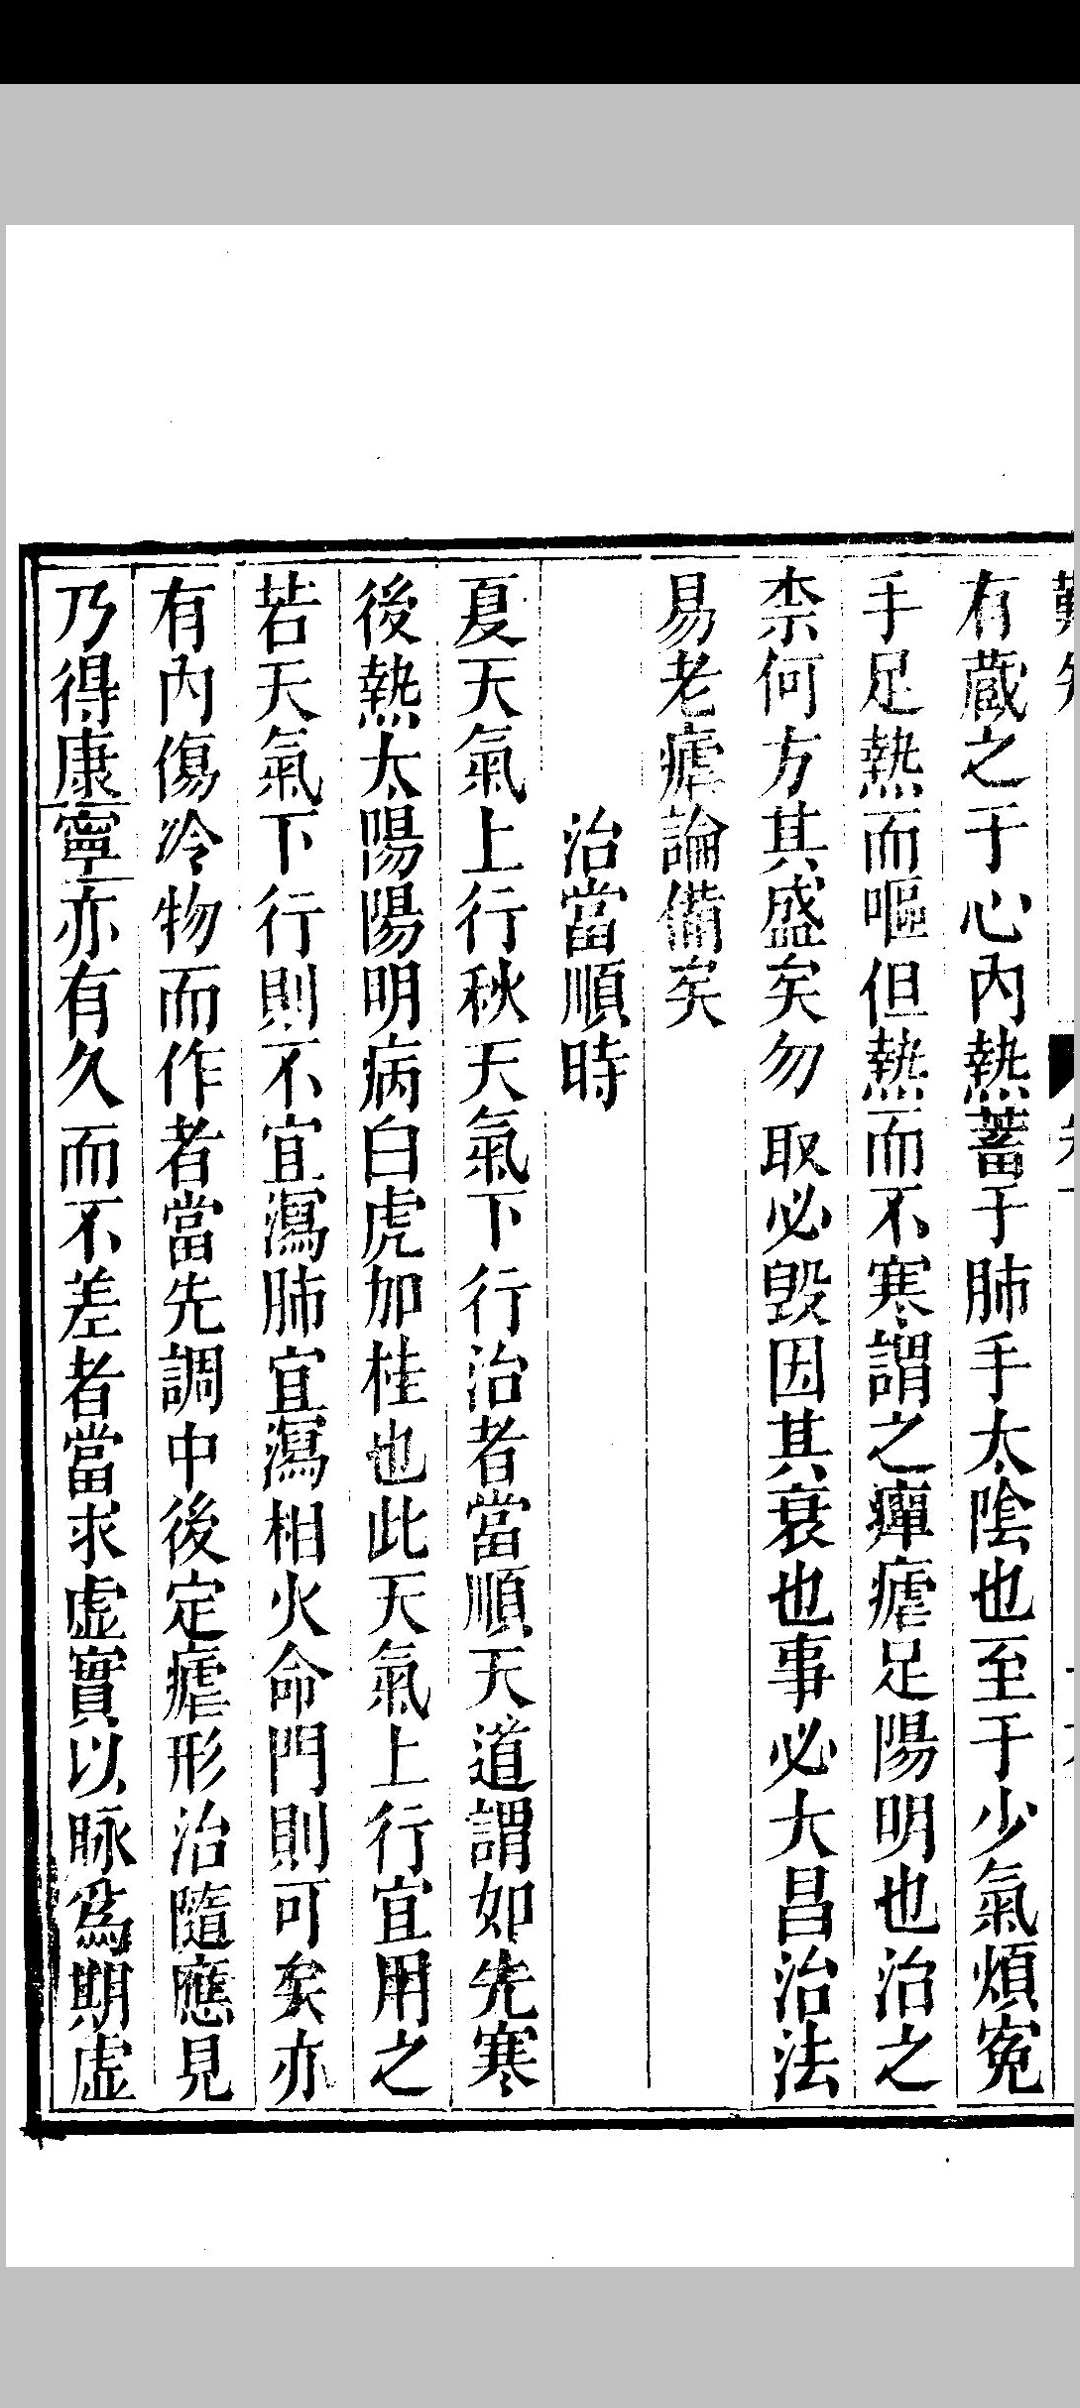 有蔵之于心内熱蓄于肺手太陰也至于少氣煩寃
手足熱而嘔但熱而不寒謂之癉瘧足陽明也治之
柰何方其盛矣勿取必毀因其衰也事必大昌治法
易老瘧論備矣
治當順時
夏天氣上行秋天氣下行治者當順天道謂如先寒
後熱太陽陽明病白虎加桂也此天氣上行宜用之
若天氣下行則不宜瀉肺宜瀉相火命門則可矣亦
有内傷冷物而作者當先調中後定瘧形治隨應見
乃得康寧亦有久而不差者當求虚實以脉爲期虚